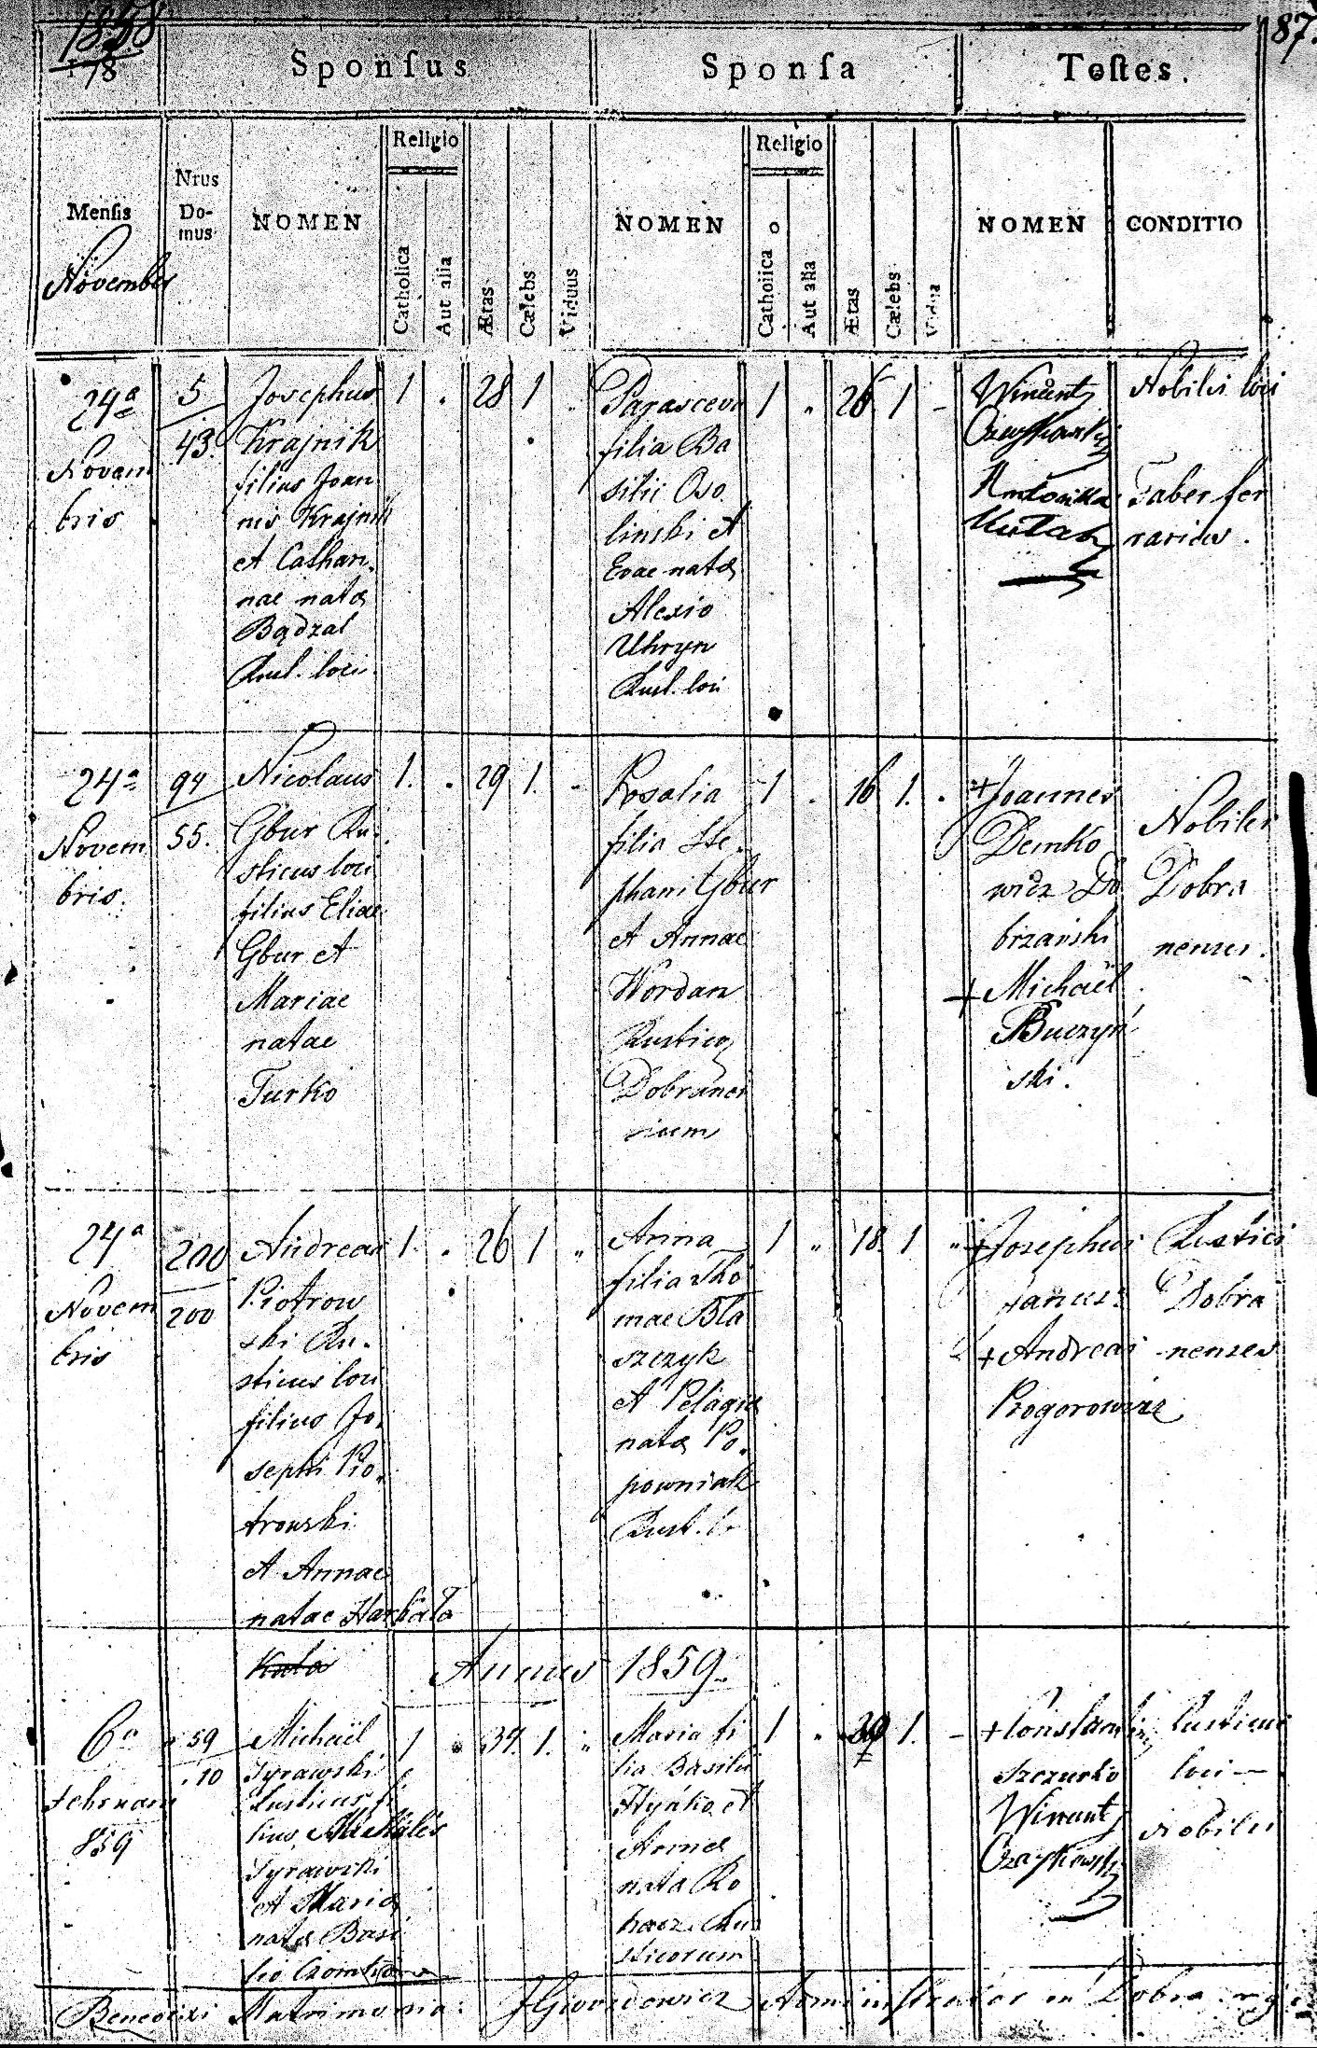 1858
18
87.
Sponſus
Sponſa
Teſtes.
Menſis
November
Nrus
Do-
mus
NOMEN
Religio
Catholica
Aut alia
Ætas
Cælebs
Viduus
NOMEN
Religio
Catholica
Aut alia
Ætas
Cælebs
Vidua
NOMEN
CONDITIO
24ª
Novem
bris
5
43.
Josephus
Krajnik
filius Joan
nis Krajnik
et Cathari
nae natae
Bądzal
Rust. loci
1
28
1
Parasceva
filia Ba
silii Oso
linski et
Evae natae
Alexio
Uhryn
Rust. loci
1
26
1
Wincenty
Nobilis loci
Faber fer
rarius.
24ª
Novem
bris.
94
55.
Nicolaus
Gbur Ru-
sticus loci
filius Eliae
Gbur et
Mariae
natae
Turko
1.
29
1.
Rosalia
filia Ste-
phani Gbur
et Annae
Wordan
Dobranen
sium
1
16
1.
+Joannes
Demko
wicz Do
brzański
+ Michaël
Buczyń
ski.
Nobiles
Dobra
nenses.
24ª
Novem
bris
200
200
Andreas
Piotrow
ski Ru-
sticus loci
filius Jo-
sephi Pio-
trowski
et Annae
natae Harbata
1.
26
1
Anna
filia Tho
mae Bła
szczyk
et Pelagiae
natae Po-
powniak
Rust. lo
1
18.
1
+Josephus
Janusz
+Andreas
Rogorowicz
Rustici
Dobra
nenses
Annus 1859.
6ª
Februarii
859
59
10
Michaël
Tyrawski
Rusticus fi
lius Michaëlis
Tyrawski
et Mariae
natae Basi
lio
1
34.
1.
Maria fi
lia Basilii
Hyńko et
Annae
nata Ro
hacz Ru
sticorum
1
1.
+Constantin
Szczurko
Wincenty
Czaykowski
Rusticus
loci
Nobilis
Benedixi Matrimonia: J Gwozdowicz Administrator in Dobra